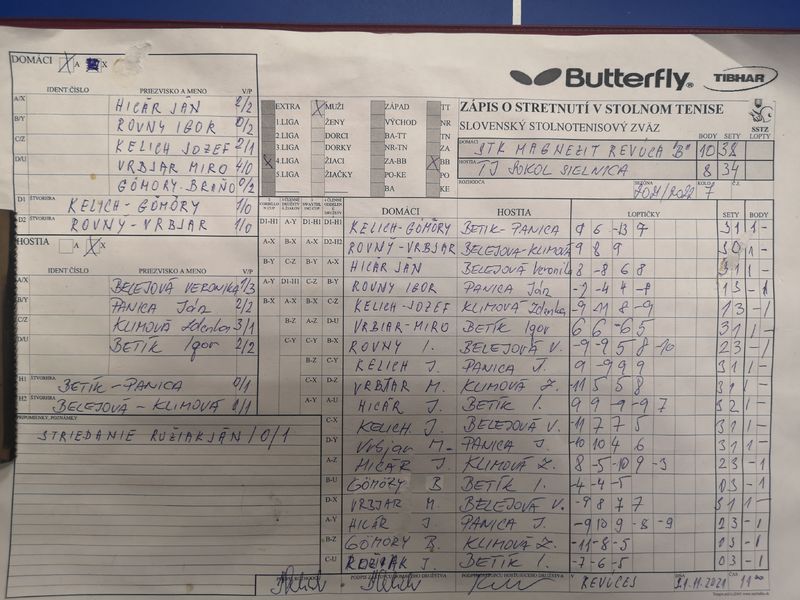 DOMÁCI X A X
Butterfly. TIBHAR
IDENT ČÍSLO PRIEZVISKO A MENO V/P
A/X HICÁR JÁN 2/2
B/Y ROVNY IGOR 0/2
C/Z KELICH JOZEF 2/1
D/U VRBJAR MIRO 4/0
GÖMÖRY BRAŇO 0/2
D1 ŠTVORHRA KELICH-GÖMÖRY 1/0
D2 ŠTVORHRA ROVNY-VRBJAR 1/0
EXTRA X MUŽI ZÁPAD TT
1.LIGA ŽENY VÝCHOD NR
2.LIGA DORCI BA-TT TN
3.LIGA DORKY NR-TN ZA
X 4.LIGA ŽIACI ZA-BB X BB
5.LIGA ŽIAČKY PO-KE PO
BA KE
ZÁPIS O STRETNUTÍ V STOLNOM TENISE
SLOVENSKÝ STOLNOTENISOVÝ ZVÄZ
SSTZ
BODY SETY LOPTY
DOMÁCI STK MAGNEZIT REVÚCA "B" 10 38
HOSTIA TJ SOKOL SIELNICA 8 34
ROZHODCA SEZÓNA 2021/2022 KOLO 7 Č.Z.
HOSTIA A X X
IDENT ČÍSLO PRIEZVISKO A MENO V/P
A/X BELEJOVÁ VERONIKA 1/3
B/Y PANICA Ján 2/2
C/Z KLIMOVÁ Zdenka 3/1
D/U BETÍK Igor 2/2
H1 ŠTVORHRA BETÍK-PANICA 0/1
H2 ŠTVORHRA BELEJOVÁ-KLIMOVÁ 0/1
PRIPOMIENKY, POZNÁMKY
STRIEDANIE RUŽIAK JÁN /0/1
DOMÁCI HOSTIA LOPTIČKY SETY BODY
D1-H1 A-Y D1-H1 D1-H1 KELICH-GÖMÖRY BETIK-PANICA 6 -13 9 31 1-
A-X B-X A-X D2-H2 ROVNY-VRBJAR BELEJOVA-KLIMOVÁ 9 8 9 30 1-
B-Y C-Z B-Y HICÁR JÁN BELEJOVÁ Veronika 8 -8 6 8 31 1-
A-Y D1-H1 C-Z ROVNY IGOR PANICA Ján -2 -4 4 -8 13 -1
B-X A-X B-X KELICH-JOZEF KLIMOVÁ Zdenka -9 11 -8 -9 13 -1
B-Z A-Z D-U VRBJAR-MIRO BETÍK Igor 6 6 -6 5 31 1-
C-Y C-Y B-X ROVNY I. BELEJOVÁ V. -9 -9 5 8 -10 23 -1
B-Z C-Y KELICH J. PANICA J. 9 -9 9 9 31 1-
C-X D-Z VRBJAR M. KLIMOVÁ Z. -11 5 5 8 31 1-
A-Y A-U HICÁR J. BETÍK I. 9 9 -9 -9 7 32 1-
C-X KELICH J. BELEJOVÁ V. -11 7 7 5 31 1-
D-Y Vrbjar M. PANICA J. -10 10 4 6 31 1-
A-Z HICÁR J. KLIMOVÁ Z. 8 -5 -10 9 -3 23 -1
B-U GÖMÖRY B BETÍK I. -4 -4 -5 03 -1
D-X VRBJAR M. BELEJOVÁ V. -9 8 7 7 31 1-
A-Y HICÁR J. PANICA J. -9 10 9 -8 -9 23 -1
B-Z GÖMÖRY B. KLIMOVÁ Z. -11 -8 -5 03 -1
C-U RUŽIAK J. BETÍK I. -7 -6 -5 03 -1
PODPIS ROZHODCU PODPIS VEDÚCEHO DOMÁCEHO DRUŽSTVA PODPIS VEDÚCEHO HOSŤUJÚCEHO DRUŽSTVA V REVÚCEJ DŇA 21.11.2021 ČAS 11⁰⁰